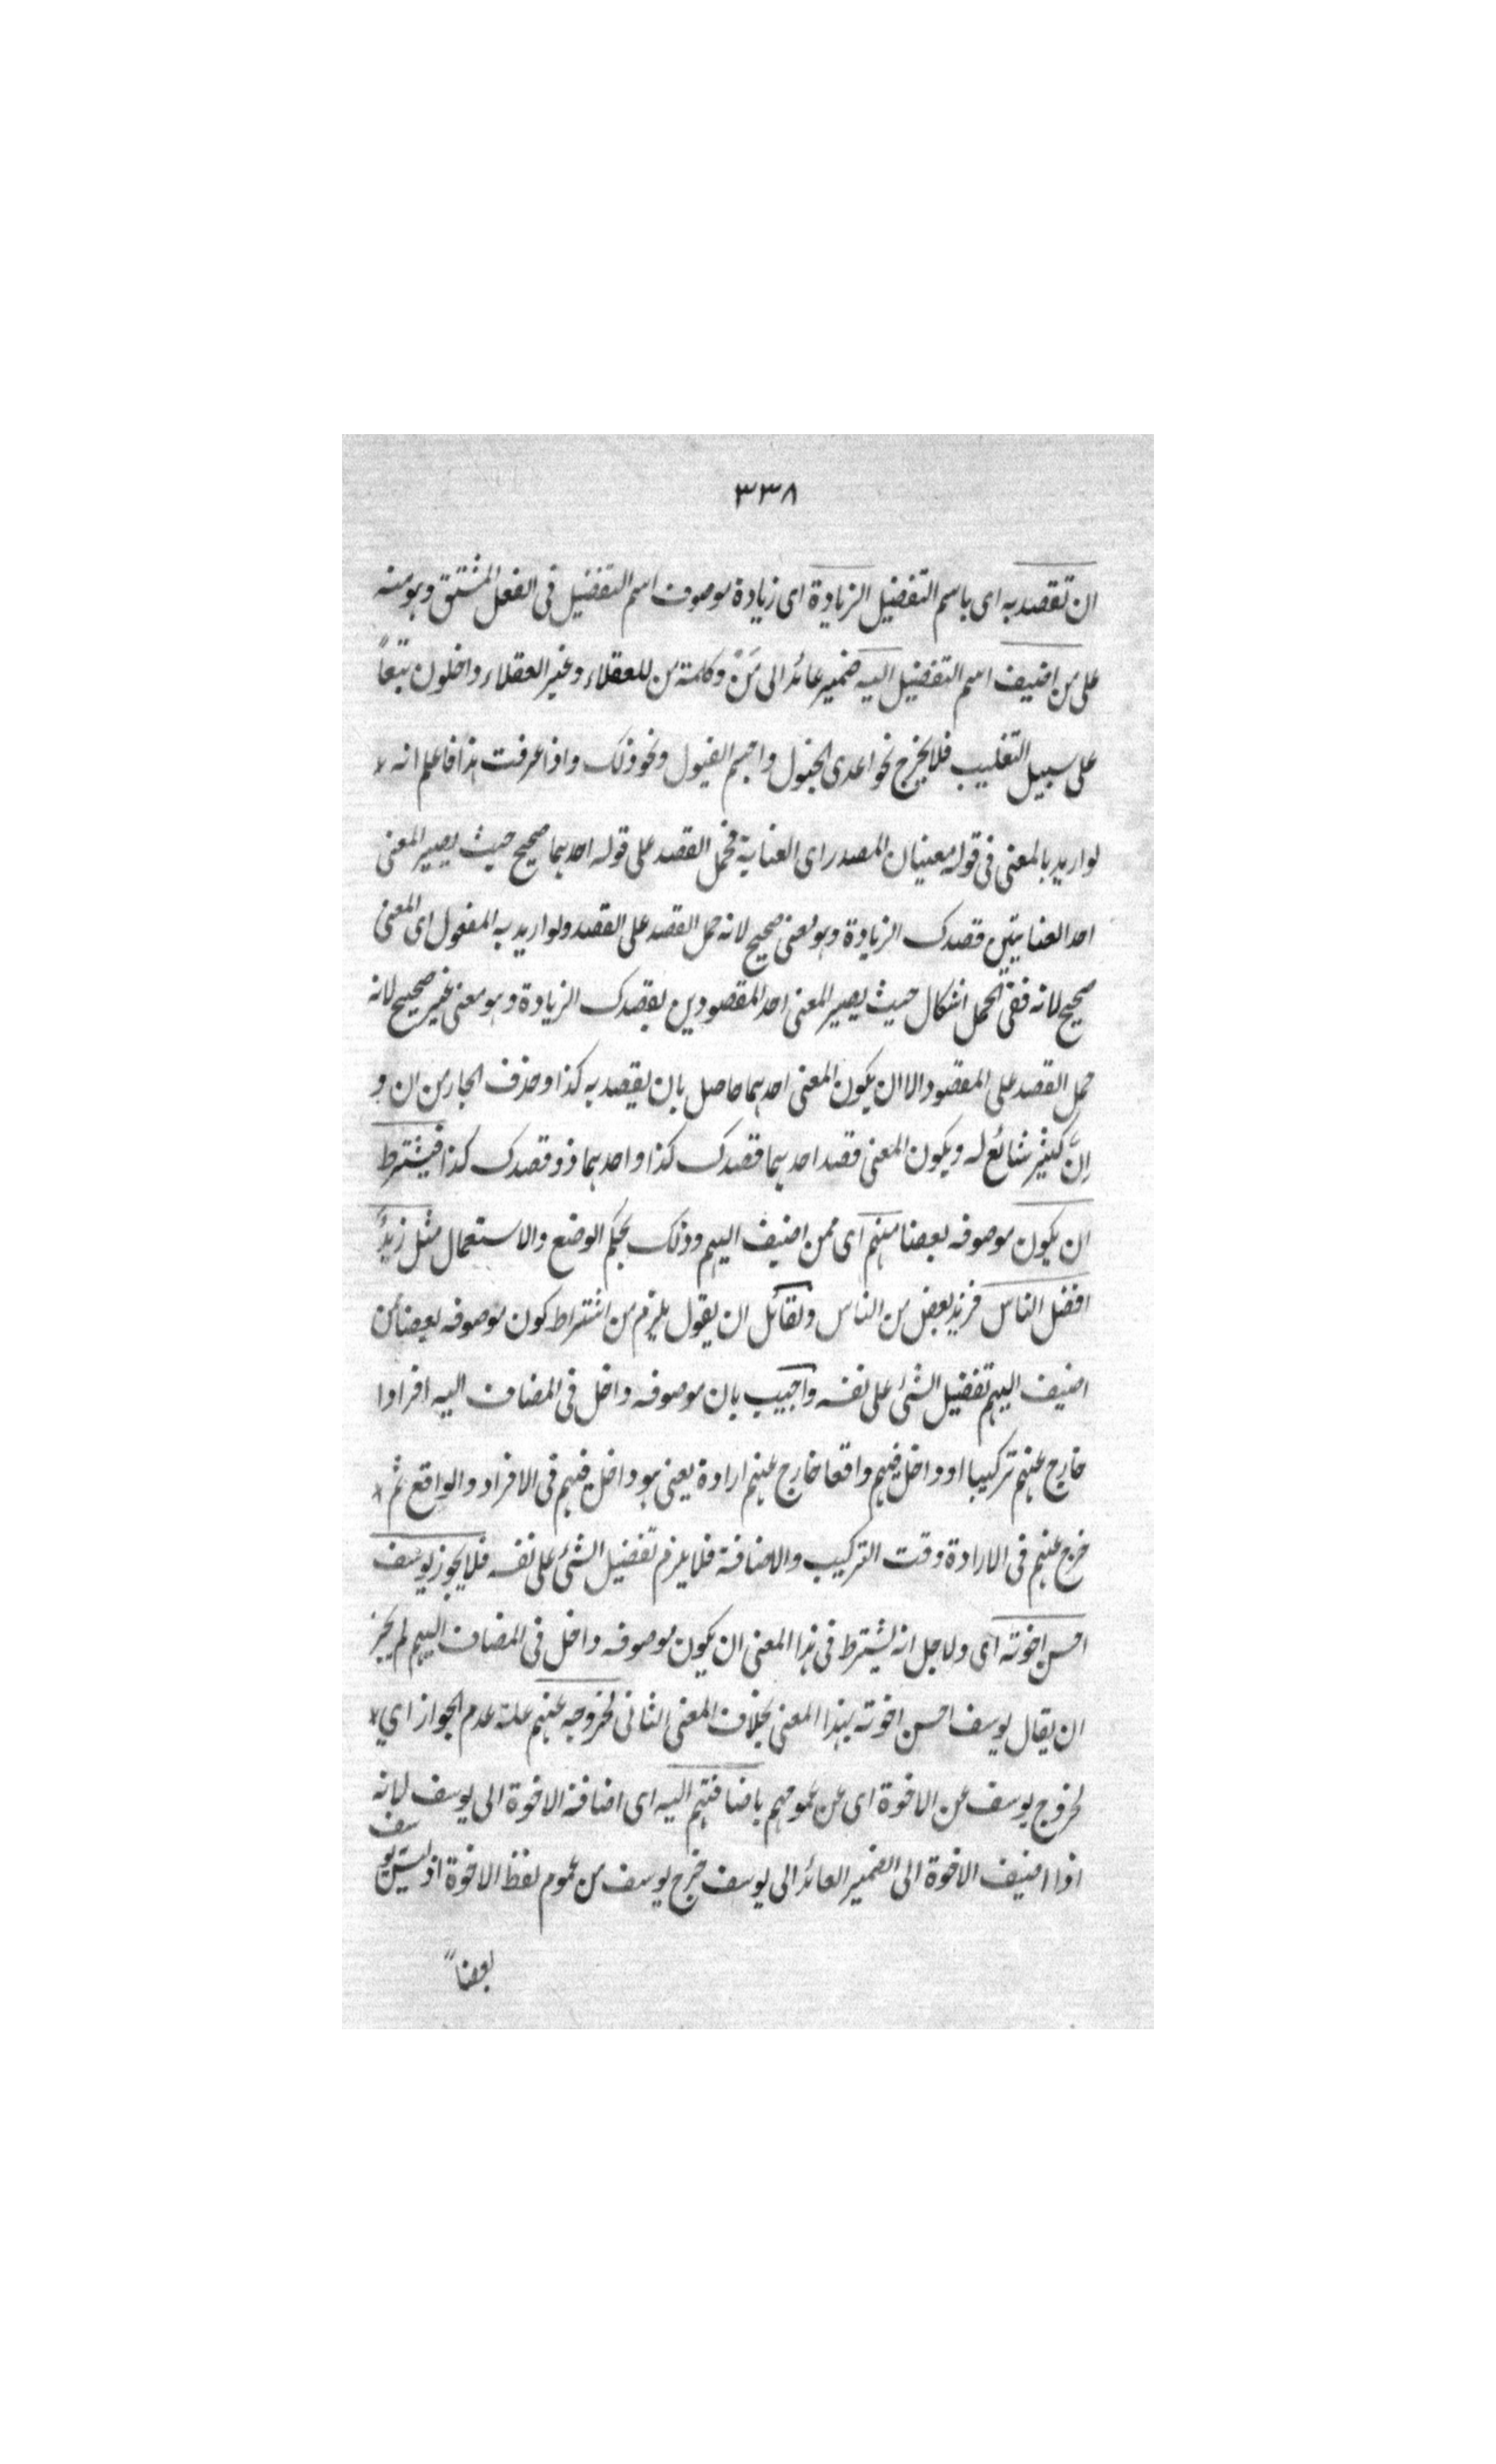 ٣٣٨
ان تقصد به اى باسم التفضيل الزيادة اى زيادة موصوف اسم التفضيل فى الفعل المشتق وهو منه
على من اضيف اسم التفضيل اليه ضمير عائد الى مَنْ وكلمة من للعقلاء وغير العقلاء داخلون تبعاً
على سبيل التغليب فلا يخرج نحو اعدى الخيول واجسم الفيول ونحو ذلك واذا عرفت هذا فاعلم انه
لو اريد بالمعنى فى قوله معنيان المصدر اى العناية فحمل القصد على قوله احدهما صحيح حيث يصير المعنى
احد العنايتين قصدك الزيادة وهو معنى صحيح لانه حمل القصد على القصد ولو اريد به المفعول اى المعنى
صحيح لانه ففى الحمل اشكال حيث يصير المعنى احد المقصودين بقصدك الزيادة وهو معنى غير صحيح لانه
حمل القصد على المقصود الا ان يكون المعنى احدهما حاصل بان يقصد به كذا وحذف الجار من ان و
اِنَّ كثير شائع له ويكون المعنى قصد احدهما قصدك كذا واحدهما ذو قصدك كذا فيشترط
ان يكون موصوفه بعضا منهم اى ممن اضيف اليهم وذلك بحكم الوضع والاستعمال مثل زيدٌ
افضل الناس فزيد بعض من الناس ولقائل ان يقول يلزم من اشتراط كون موصوفه بعضا من
اضيف اليهم تفضيل الشئ على نفسه واجيب بان موصوفه داخل فى المضاف اليه افرادا
خارج عنهم تركيبا او داخل فيهم واقعا خارج عنهم ارادة يعنى هو داخل فيهم فى الافراد والواقع ثم
خرج عنهم فى الارادة وقت التركيب والاضافة فلا يلزم تفضيل الشئ على نفسه فلا يجوز يوسف
احسن اخوته اى ولاجل انه يشترط فى هذا المعنى ان يكون موصوفه داخل فى المضاف اليهم لم يجز
ان يقال يوسف احسن اخوته بهذا المعنى بخلاف المعنى الثانى لخروجه عنهم علة عدم الجواز اي
لخروج يوسف عن الاخوة اى عن عمومهم باضافتهم اليه اى اضافة الاخوة الى يوسف لانه
اذا اضيف الاخوة الى الضمير العائد الى يوسف خرج يوسف من عموم لفظ الاخوة اذ ليس يوسف
بعضا